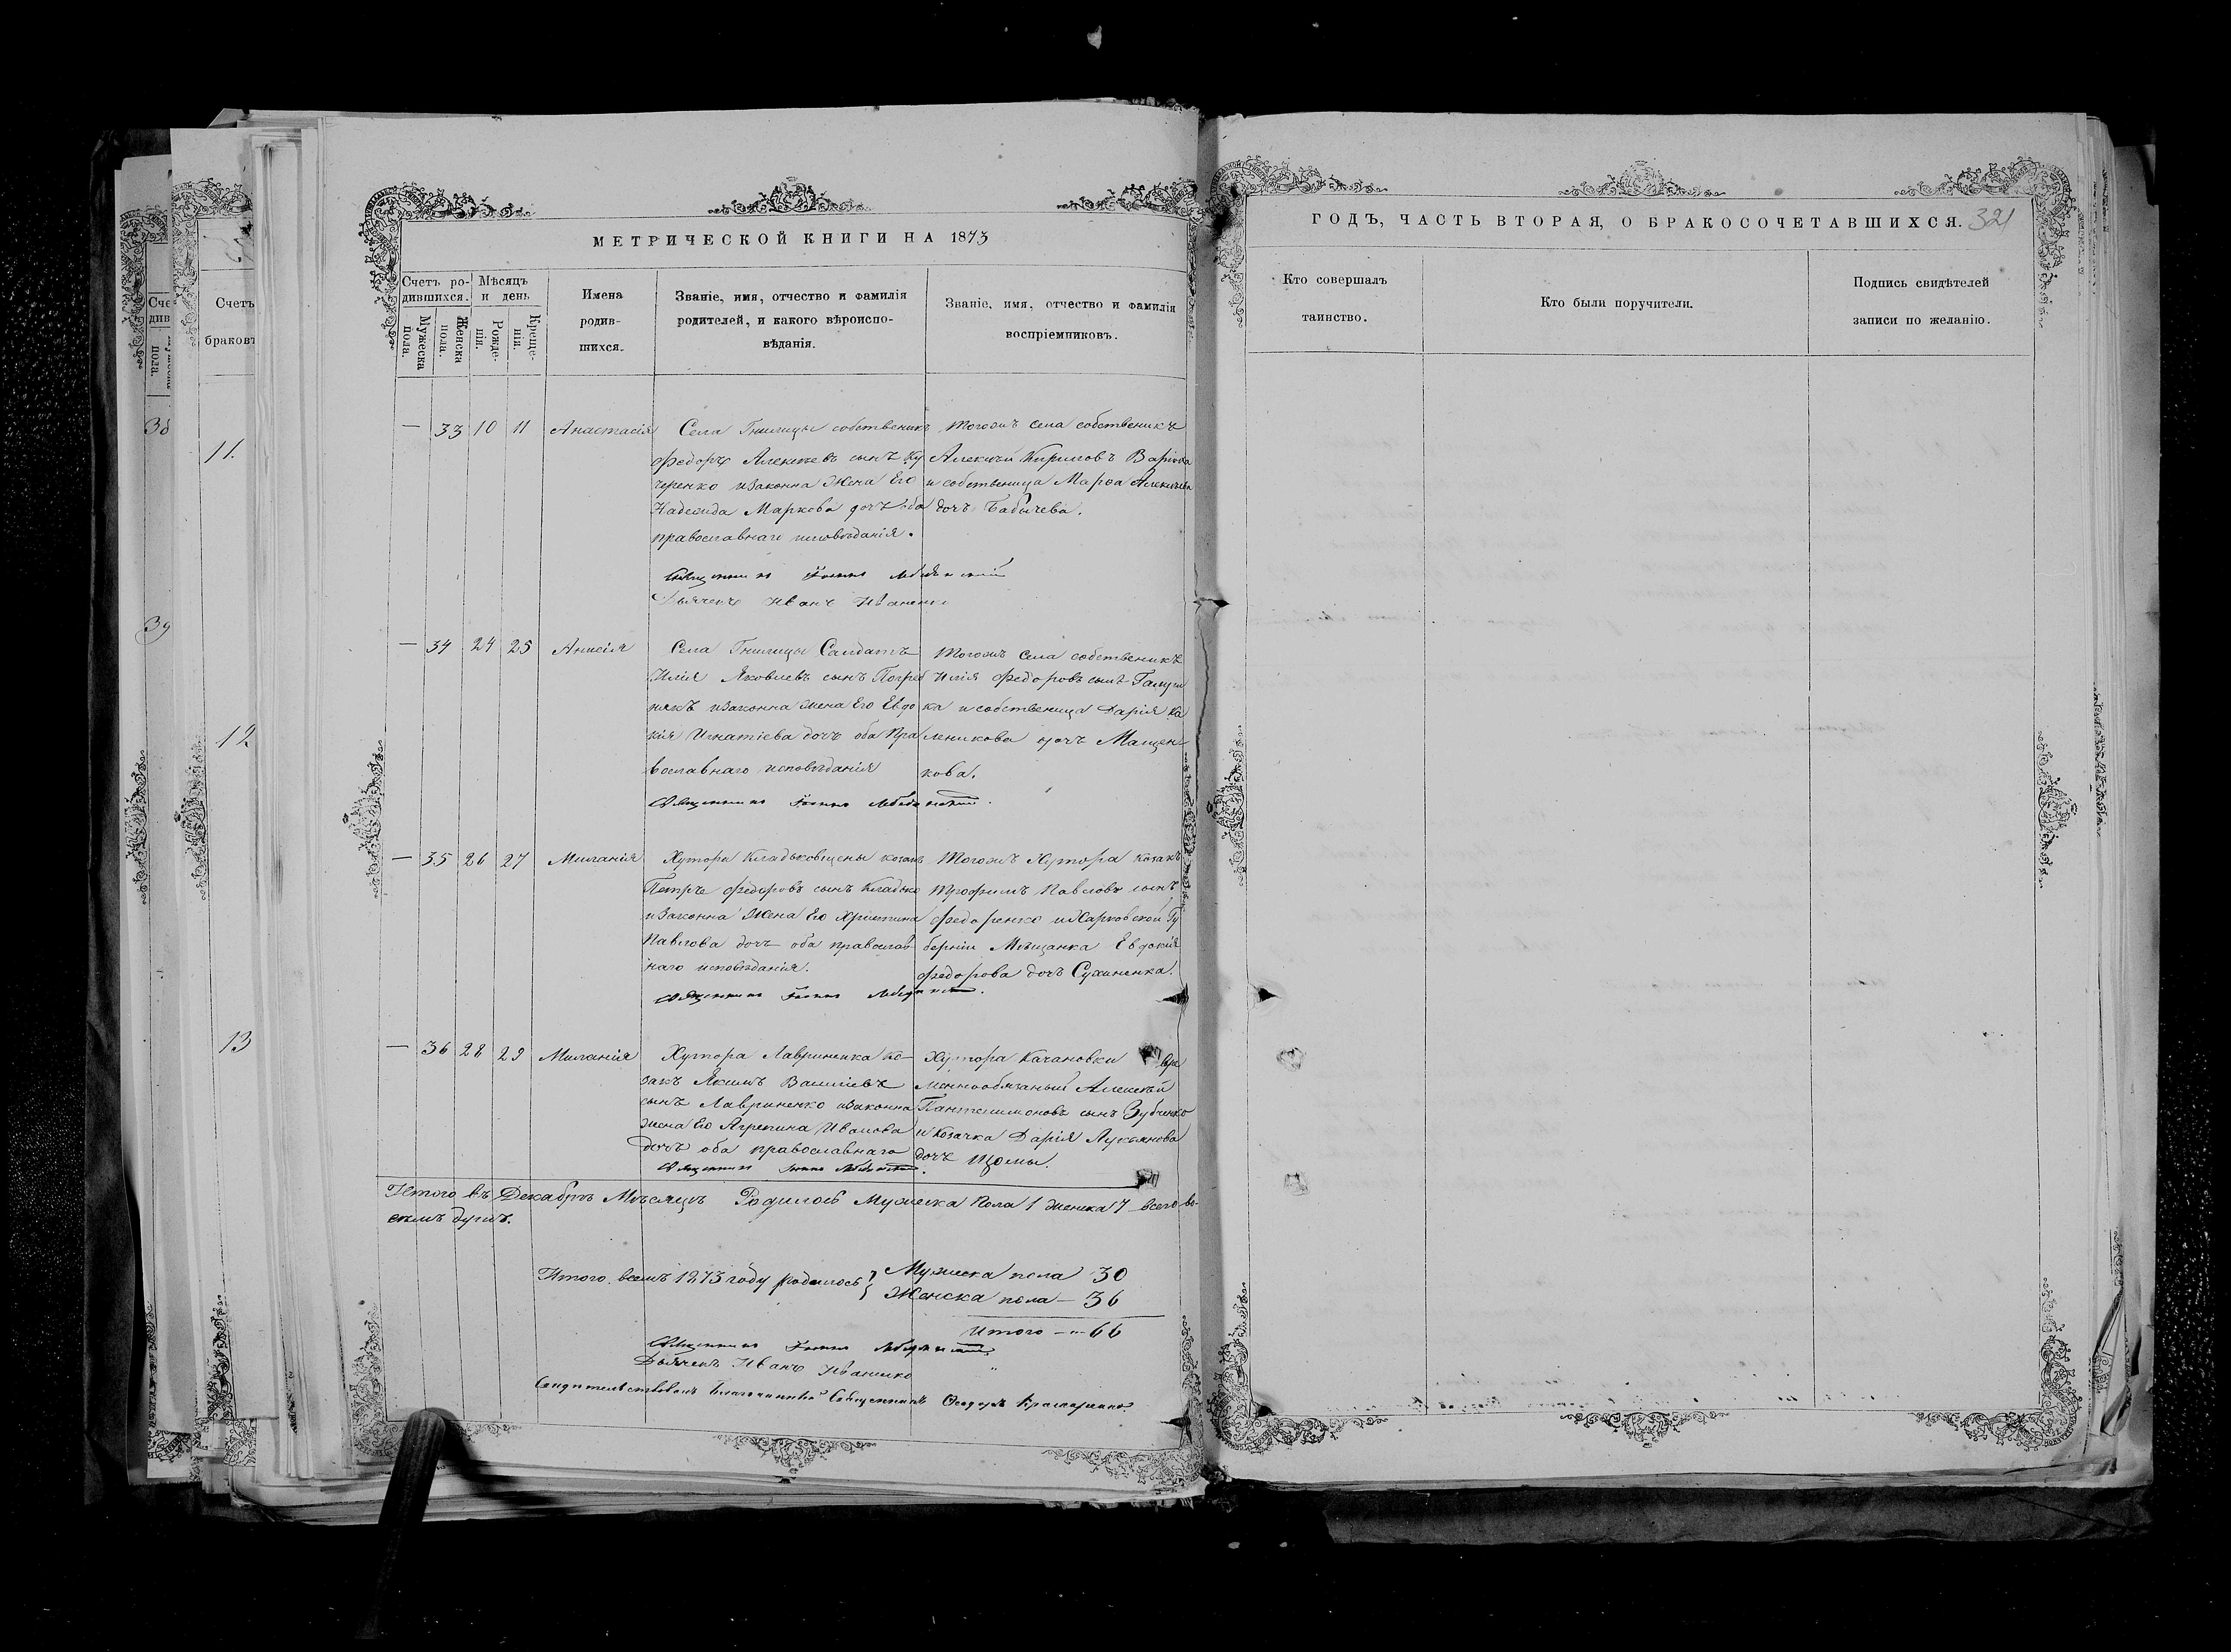 МЕТРИЧЕСКОЙ КНИГИ НА 1873
Счетъ ро-
дившихся.
Мужеска
пола.
Женска
пола.
Мѣсяцъ
и день
Рожде-
нія.
Креще-
нія.
Имена
родив-
шихся.
Званіе, имя, отчество и фамилія
родителей, и какого вѣроиспо-
вѣданія.
Званіе, имя, отчество и фамилія
воспріемниковъ.
— 33 10 11 Анастасія
Села Гнилицы собственикъ
Федоръ Алексѣевъ сынъ Ку
черенко изаконна Жена Его
Надежда Маркова дочъ оба
православнаго исповѣданія.
Священникъ Іоаннъ
Дьячекъ Иванъ Иваненко
Тогожъ села собственикъ
Алексѣй Кириловъ
и собственица Марѳа Алексѣева
дочъ Бабычева.
— 34 24 25 Анисія
Села Гнилицы Салдатъ
Илія Яковлевъ сынъ Погреб
някъ изаконна жена Его Евдо
кія Игнатіева дочъ оба Пра
вославнаго исповѣданія
Священникъ Іоаннъ
Тогожъ Села собственикъ
Илія Федоровъ сынъ
ка и собственица Дарія Ка
леникова дочъ Мащен
кова.
— 35 26 27 Миланія
Хутора козакъ
Петръ Федоровъ сынъ Кладько
изаконна Жена Его Христина
Павлова дочъ оба православ
наго исповѣданія.
Священникъ Іоаннъ
Тогожъ Хутора Козакъ
Трофимъ Павловъ сынъ
Федоренко и Харковской Гу
берніи Мѣщанка Евдокія
Федорова дочъ Сухиненка.
— 36 28 29 Миланія
Хутора Лавриненка ко-
закъ Якимъ Василіевъ
сынъ Лавриненко изаконна
жена Его Агрепина Иванова
дочъ оба православнаго
Священникъ Іоаннъ
Хутора Качановки вре
меннообязаный Алексѣй
Пантелимоновъ сынъ Зубченко
и Козачка Дарія Лукьянова
дочъ Щомы.
Итого въ Декабрѣ Мѣсяцѣ Родилось Мужеска Пола 1 женска 7 всего во-
семъ душъ.
Итого всемъ 1873 году родилось } Мужеска пола 30
Женска пола — 36
Итого — 66
Священникъ Іоаннъ
Дьячекъ Иванъ Иваненко
Свидѣтельствовалъ Благочинный Священникъ Ѳеодоръ
ГОДЪ, ЧАСТЬ ВТОРАЯ, О БРАКОСОЧЕТАВШИХСЯ. 321
Кто совершалъ
таинство.
Кто были поручители.
Подпись свидѣтелей
записи по желанію.
Счетъ
браковъ
11.
12
13
39